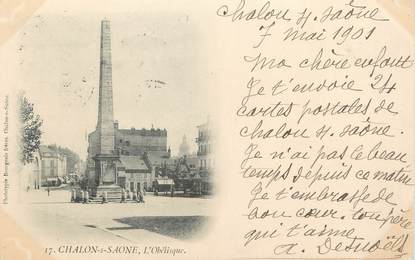 Chalon s. saône
7 mai 1901
Ma chère enfant
Je t'envoie 24
cartes postales de
chalon s. saône.
Je n'ai pas le beau
temps depuis ce matin
Je t'embrasse de
bon cœur. ton père
qui t'aime
17. CHALON-s-SAONE, L'Obélisque.
Phototypie Bourgeois frères, Chalon-s-Saône